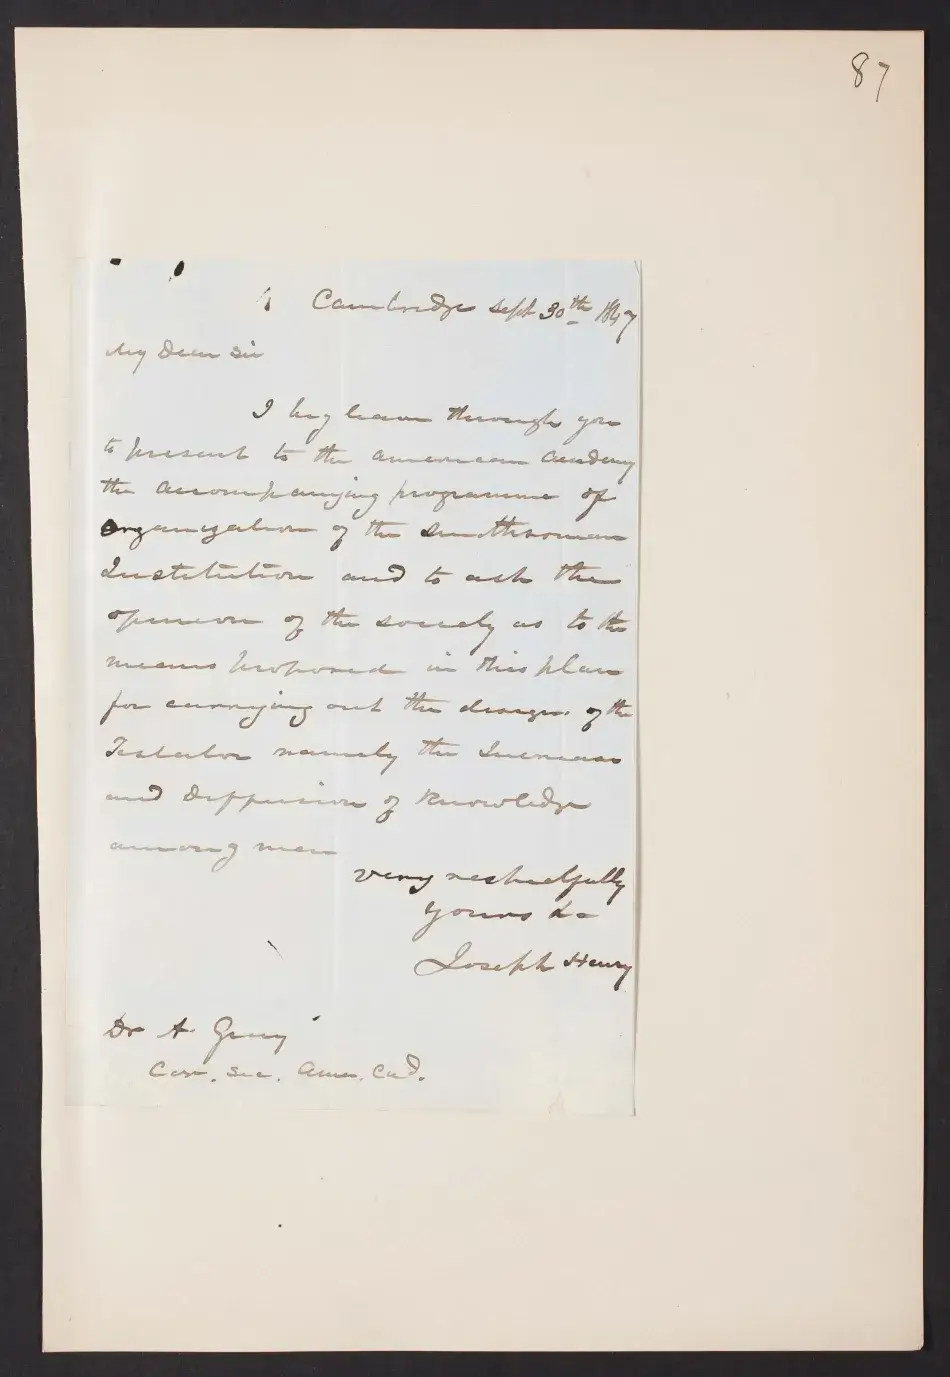 87
Cambridge Sept 30th 1847
My Dear Sir
I beg leave through you
to present to the American Academy
the accompanying programme of
Organization of the Smithsonian
Institution and to ask the
opinion of the society as to the
means proposed in this plan
for carrying out the design of the
Testator namely the Increase
and Diffusion of Knowledge
among men
very respectfully
Yours &c
Joseph Henry
Dr A. Gray
Cor. Sec. Amer. Cad.